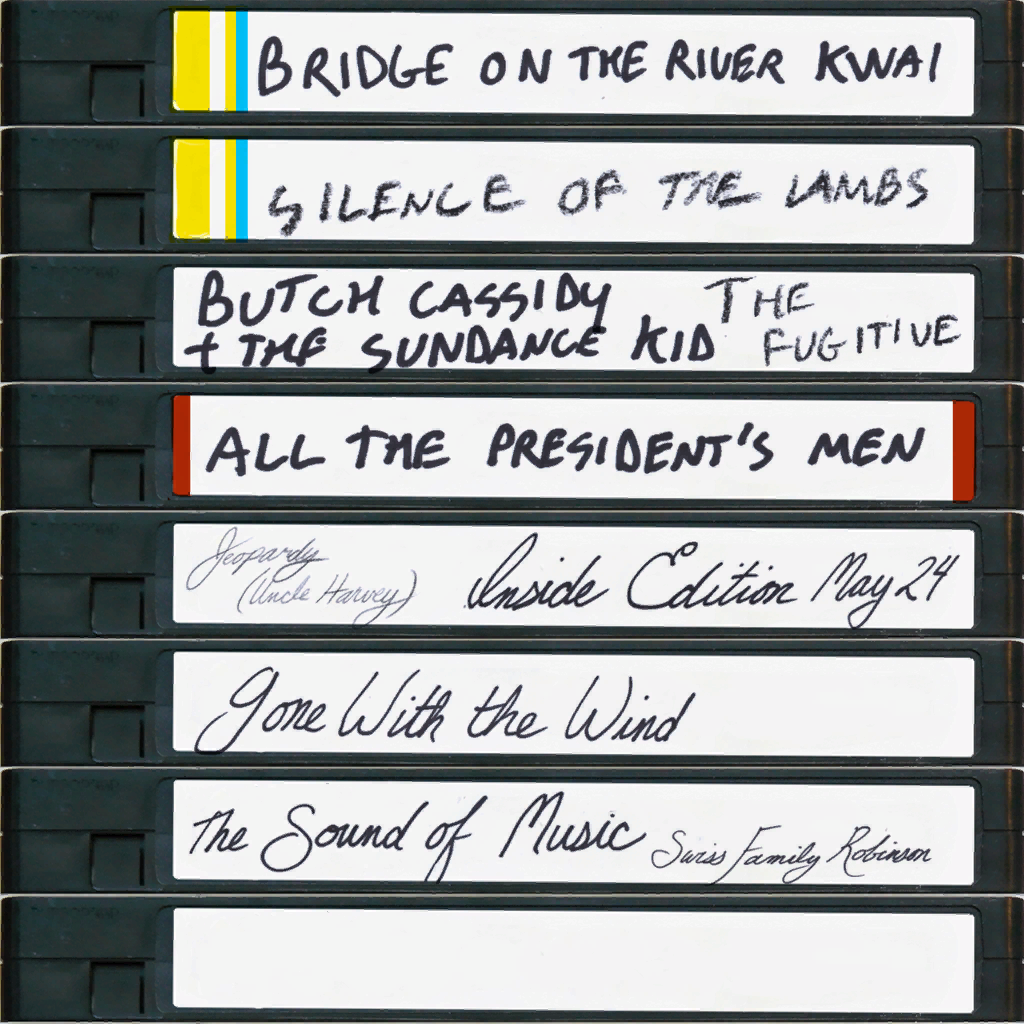 BRIDGE ON THE RIVER KWAI
SILENCE OF THE LAMBS
BUTCH CASSIDY
+ THE SUNDANCE KID
THE
FUGITIVE
ALL THE PRESIDENT'S MEN
Jeopardy
(Uncle Harvey)
Inside Edition May 24
Gone With the Wind
The Sound of Music
Swiss Family Robinson